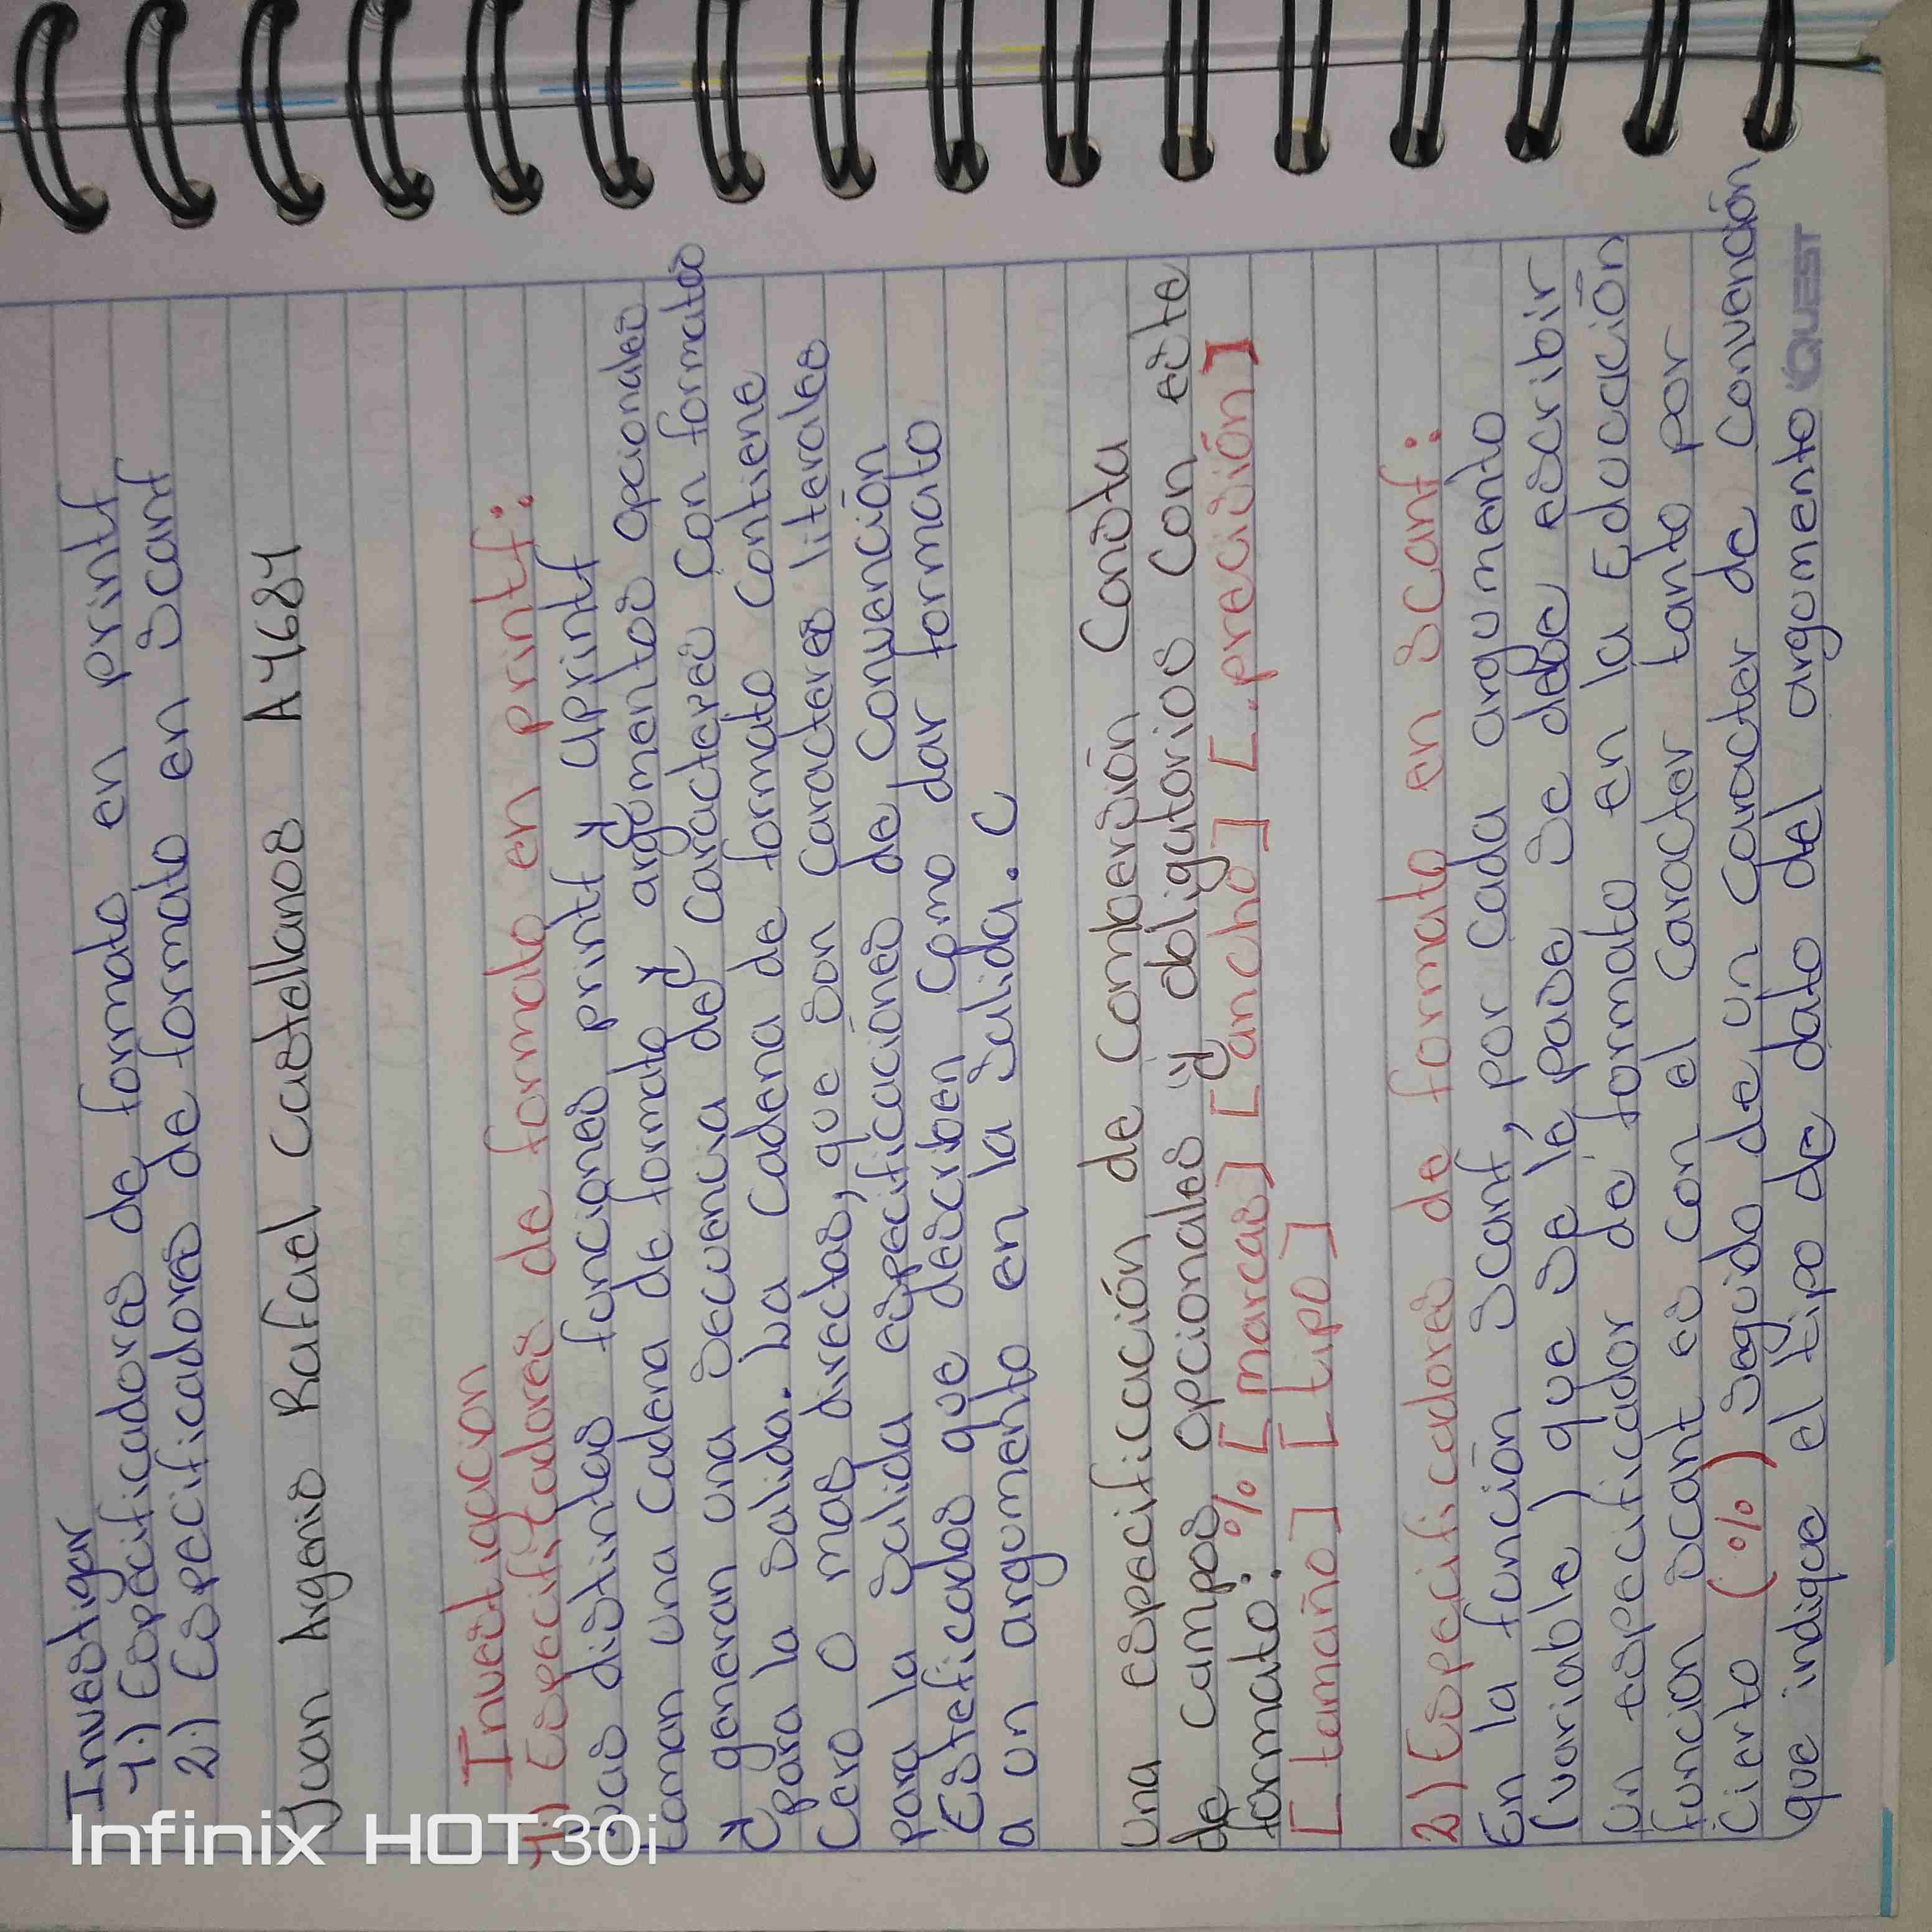 Investigar
1.) Especificadores de formato en printf
2.) Especificadores de formato en scanf
Juan Argenis Rafael Castellanos A4684
Investigacion
1.) Especifitadores de formato en printf:
Las distintas funciones printf y aprintf
toman una cadena de formato y argumentos opcionales
y generan una secuencia de caracteres con formatos
para la salida. La cadena de formato contiene
Cero o mas directas, que son caracteres literales
para la salida especificaciones de convención
Esteficados que describen como dar formato
a un argumento en la salida. C
Una especificación de combersión Consta
de campos opcionales y obligatorios con este
formato: % [marcas] [ancho] [.precisión]
[tamaño] [tipo]
2) Especificadores de formato en scanf:
En la función scanf, por cada argumento
(variable) que se le pase se debe escribir
Un especificador de formato en la Educación
funcion scant es con el caracter tanto por
Cierto (%) seguido de un caracter de convención
que indique el tipo de dato del argumento
QUEST
Infinix HOT 30i